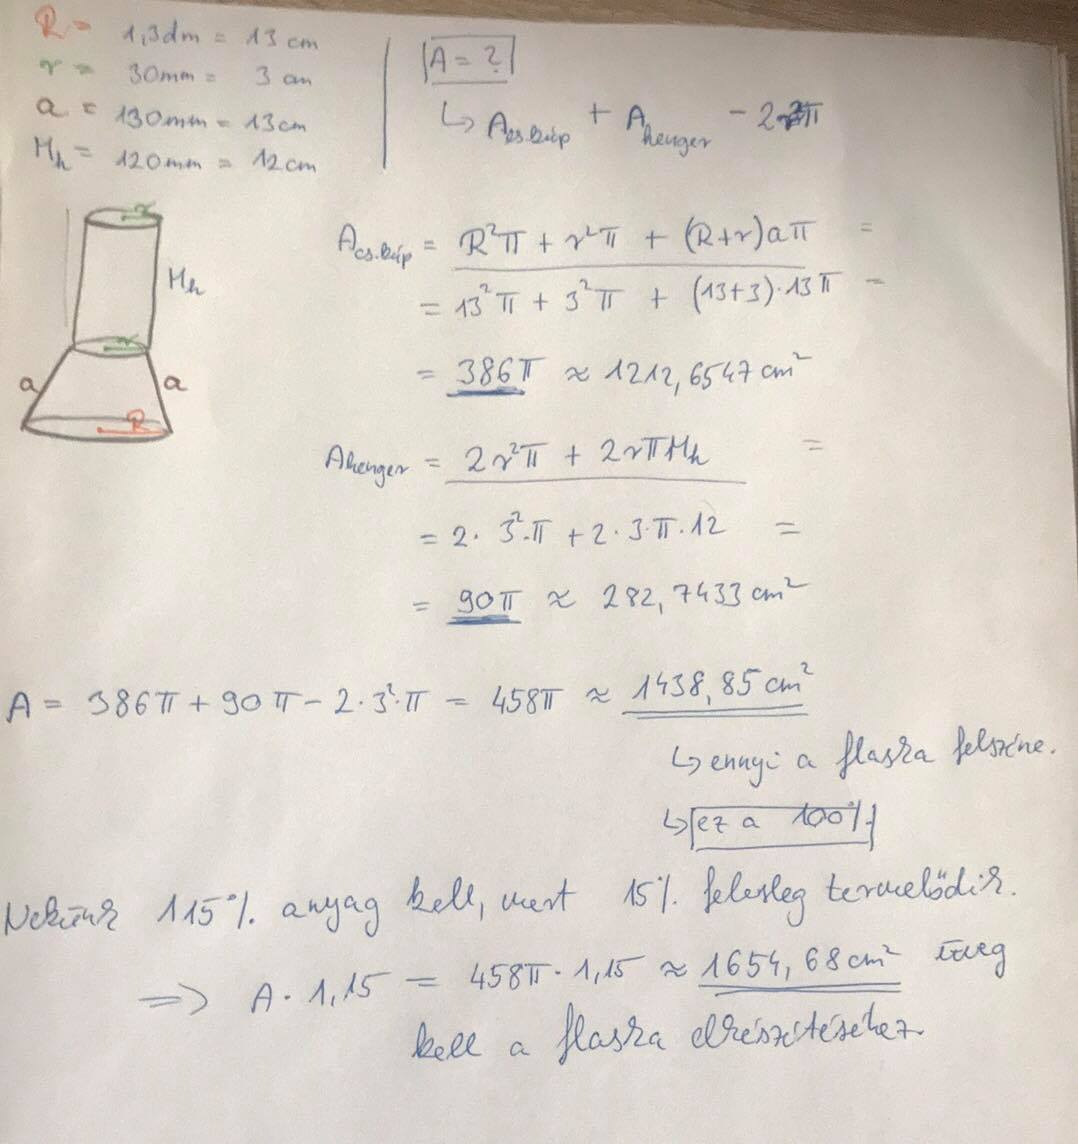 R = 1,3dm = 13 cm
r = 30mm = 3 cm
a = 130mm = 13cm
Mh = 120mm = 12cm
A = ?
↳ Acs.kúp + Ahenger - 2r²π
r
Mh
r
a a
R
Acs.kúp = R²π + r²π + (R+r)aπ =
= 13²π + 3²π + (13+3)·13π =
= 386π ≈ 1212,6547 cm²
Ahenger = 2r²π + 2rπMh =
= 2·3²·π + 2·3·π·12 =
= 90π ≈ 282,7433 cm²
A = 386π + 90π - 2·3²·π = 458π ≈ 1438,85 cm²
↳ ennyi a flaska felszíne.
↳ ez a 100%
Nekünk 115% anyag kell, mert 15% felesleg termelődik.
=> A·1,15 = 458π·1,15 ≈ 1654,68 cm² üveg
kell a flaska elkészítéséhez.